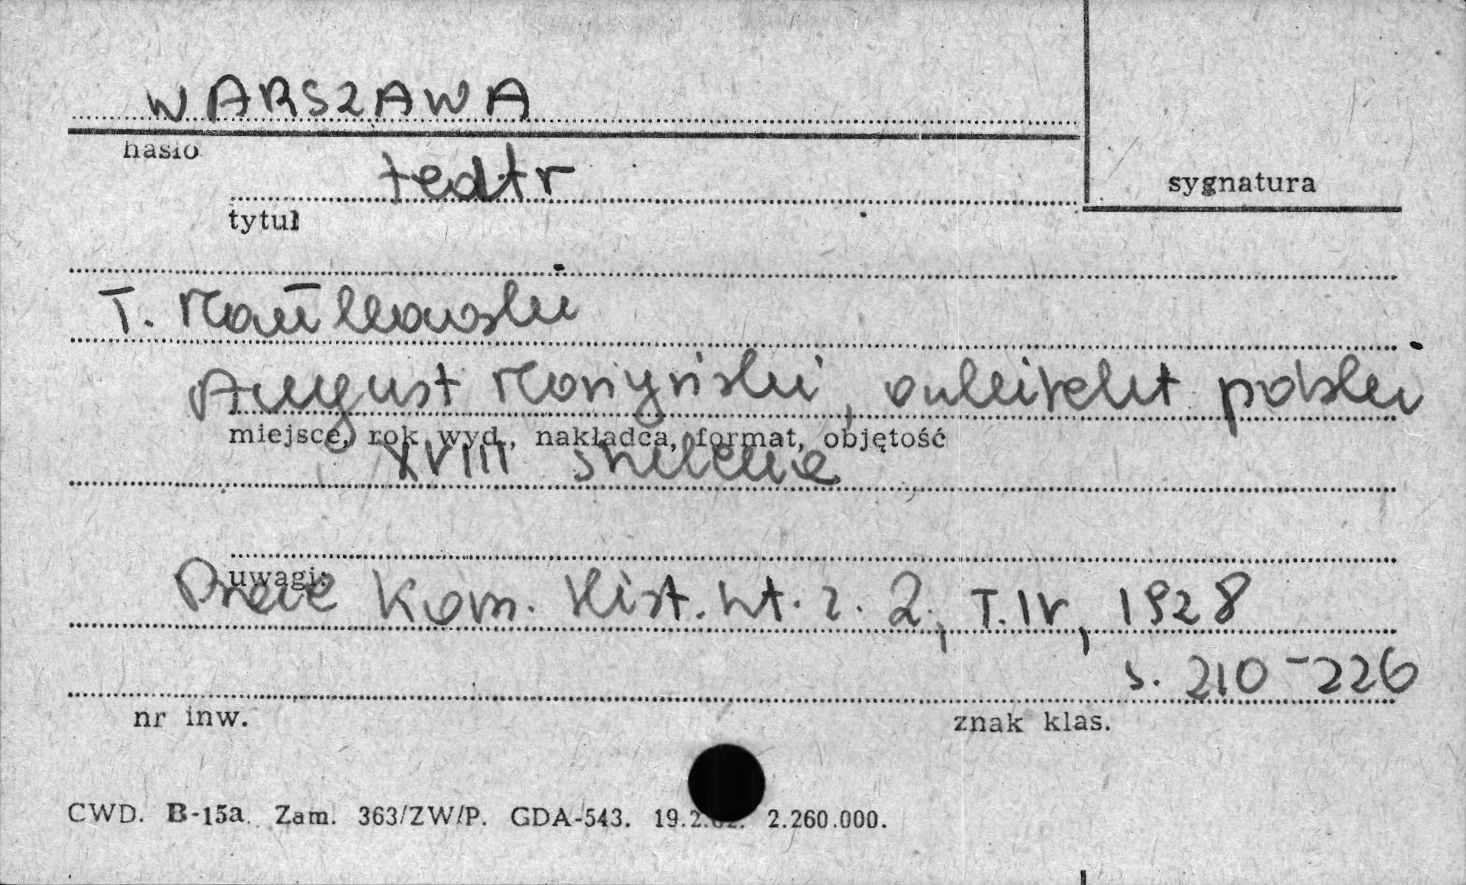 WARSZAWA
hasło
teatr
sygnatura
tytuł
T. Mańkowski
August Moszyński, architekt polski
miejsce, rok wyd., nakładca, format, objętość
XVIII stulecia
uwagi:
Prace Kom. Hist. Szt. z. 2, T. IV, 1928
s. 210-226
nr inw.
znak klas.
CWD. B-15a. Zam. 363/ZW/P. GDA-543. 2.260.000.